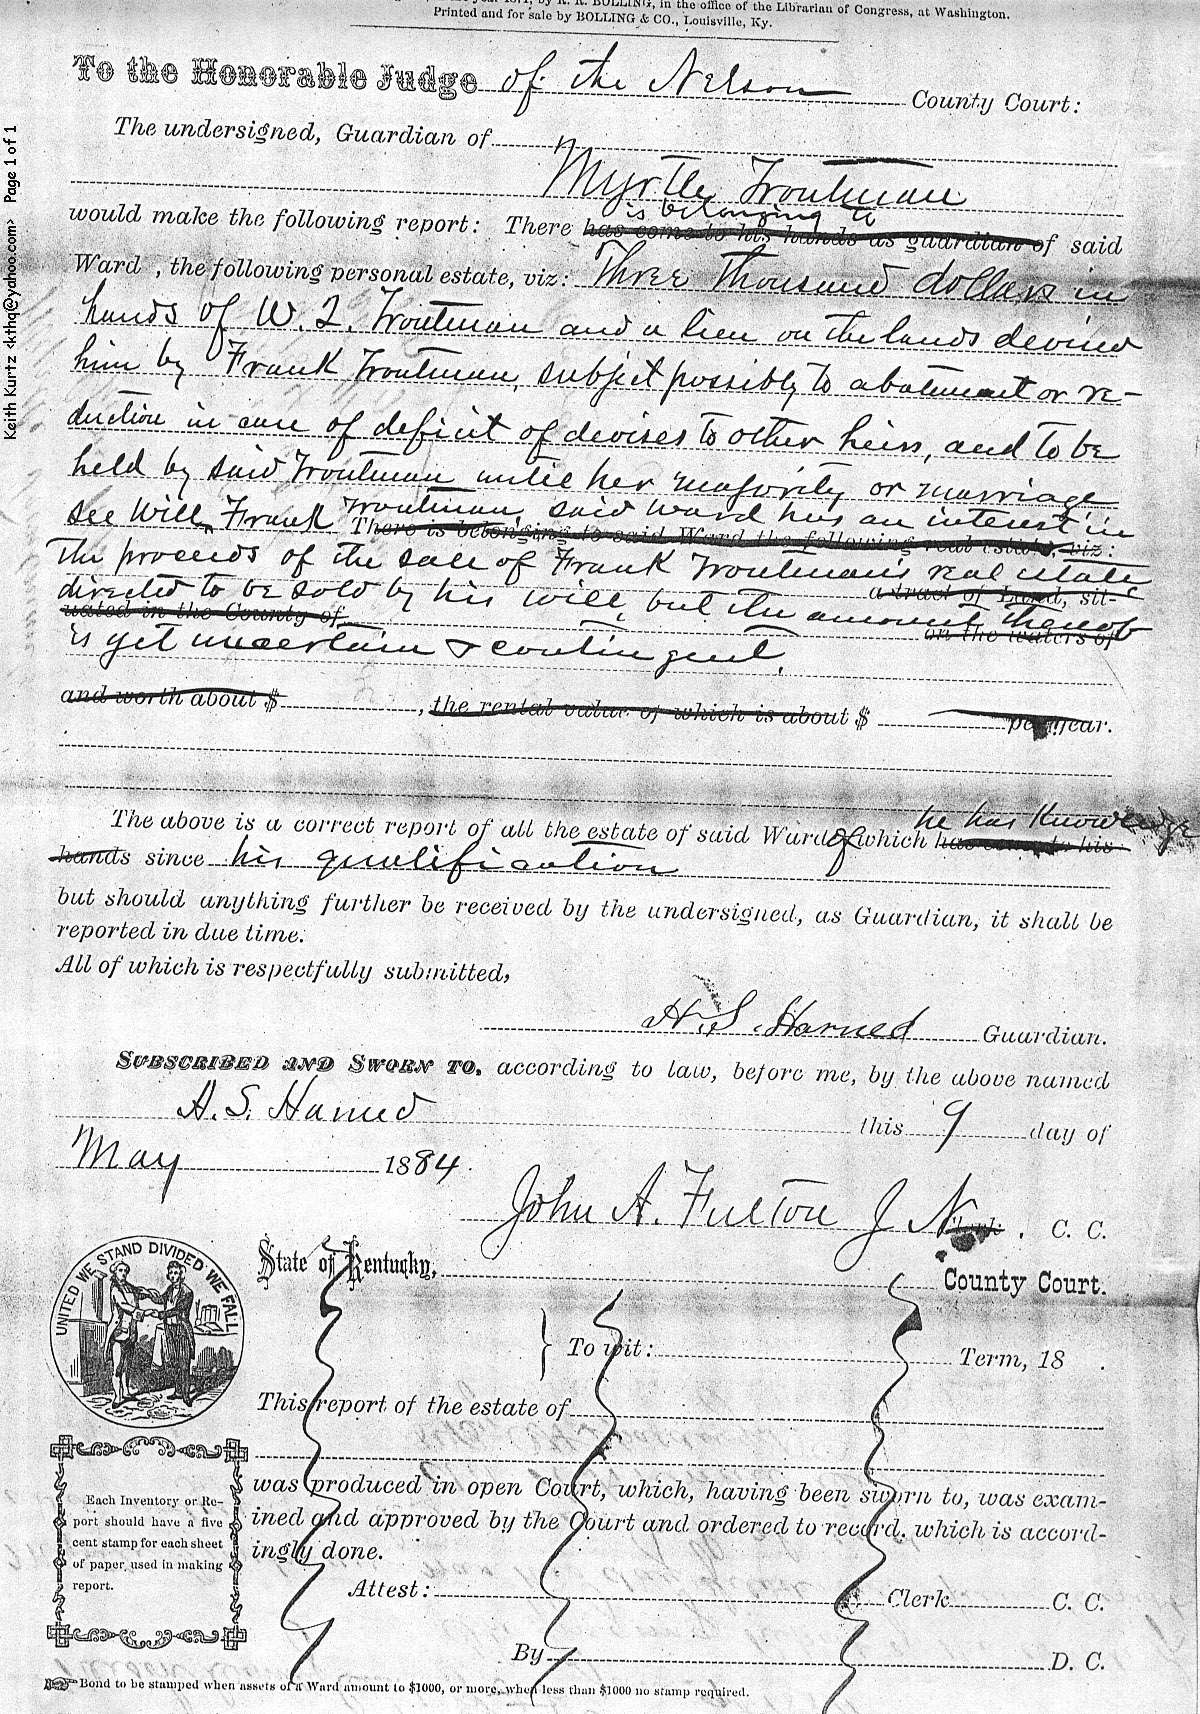 by R. R. BOLLING, in the office of the Librarian of Congress, at Washington.
Printed and for sale by BOLLING & CO., Louisville, Ky.
To the Honorable Judge of the Nelson County Court:
The undersigned, Guardian of
Myrtle Troutman
is belonging to
would make the following report: There has come to his hands as guardian of said
Ward, the following personal estate, viz: Three thousand dollars in
hands of W. T. Troutman and a lien on the lands devised
him by Frank Troutman, subject possibly to abatement or re-
duction in case of deficit of devises to other heirs, and to be
held by said Troutman until her majority or marriage
see Will, Frank Troutman, said ward has an interest in
There is belonging to said Ward the following real estate, viz:
the proceeds of the sale of Frank Troutman's real estate
a tract of Land, sit-
directed to be sold by his will, but the amount thereof
uated in the County of
on the waters of
is yet uncertain & contingent.
and worth about $ , the rental value of which is about $ per year.
he has knowledge
The above is a correct report of all the estate of said Ward of which has come to his
hands since his qualification
but should anything further be received by the undersigned, as Guardian, it shall be
reported in due time.
All of which is respectfully submitted,
H. S. Harned Guardian.
SUBSCRIBED AND SWORN TO, according to law, before me, by the above named
H. S. Harned this 9 day of
May 1884.
John A. Fulton J N Clerk. C. C.
State of Kentucky, County Court.
To wit: Term, 18 .
This report of the estate of
was produced in open Court, which, having been sworn to, was exam-
ined and approved by the Court and ordered to record, which is accord-
ingly done.
Attest: Clerk C. C.
By D. C.
UNITED WE STAND DIVIDED WE FALL
Each Inventory or Re-
port should have a five
cent stamp for each sheet
of paper used in making
report.
Bond to be stamped when assets of a Ward amount to $1000, or more, when less than $1000 no stamp required.
Keith Kurtz <kthq@yahoo.com> Page 1 of 1